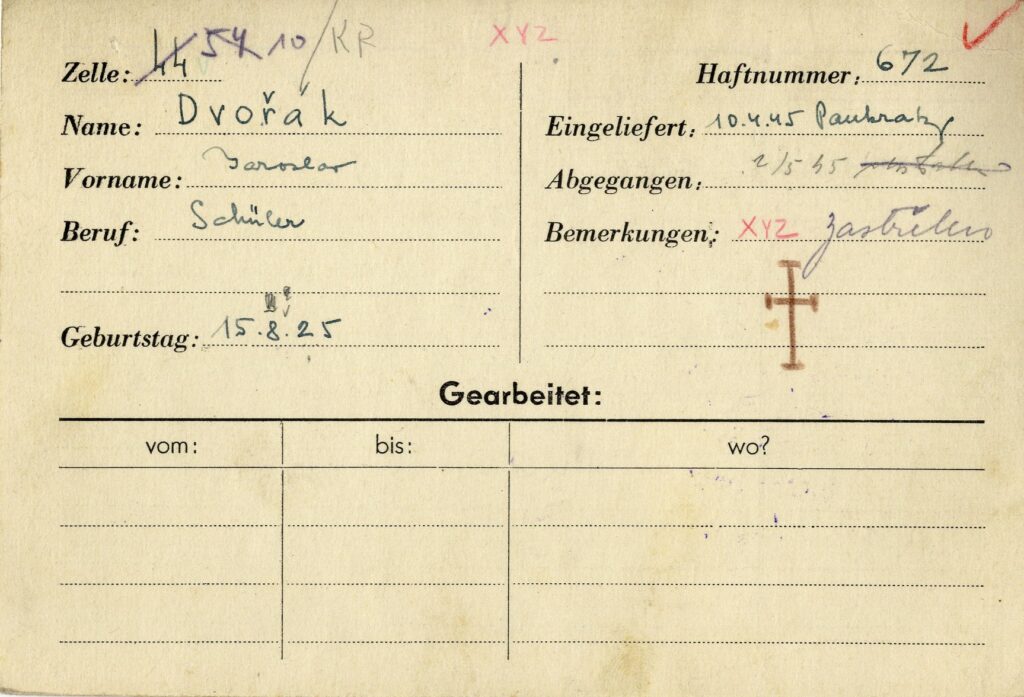 44 54 10/KR XYZ
Zelle: Haftnummer: 672
Name: Dvořák Eingeliefert: 10.4.45 Pankratz
Vorname: Jaroslav Abgegangen: 2/5 45
Beruf: Schüler Bemerkungen: XYZ zastřelen
Geburtstag: 15.8.25
Gearbeitet:
vom: bis: wo?